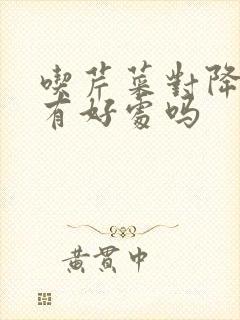 喫芹菜對降
有好處吗
黃貫中